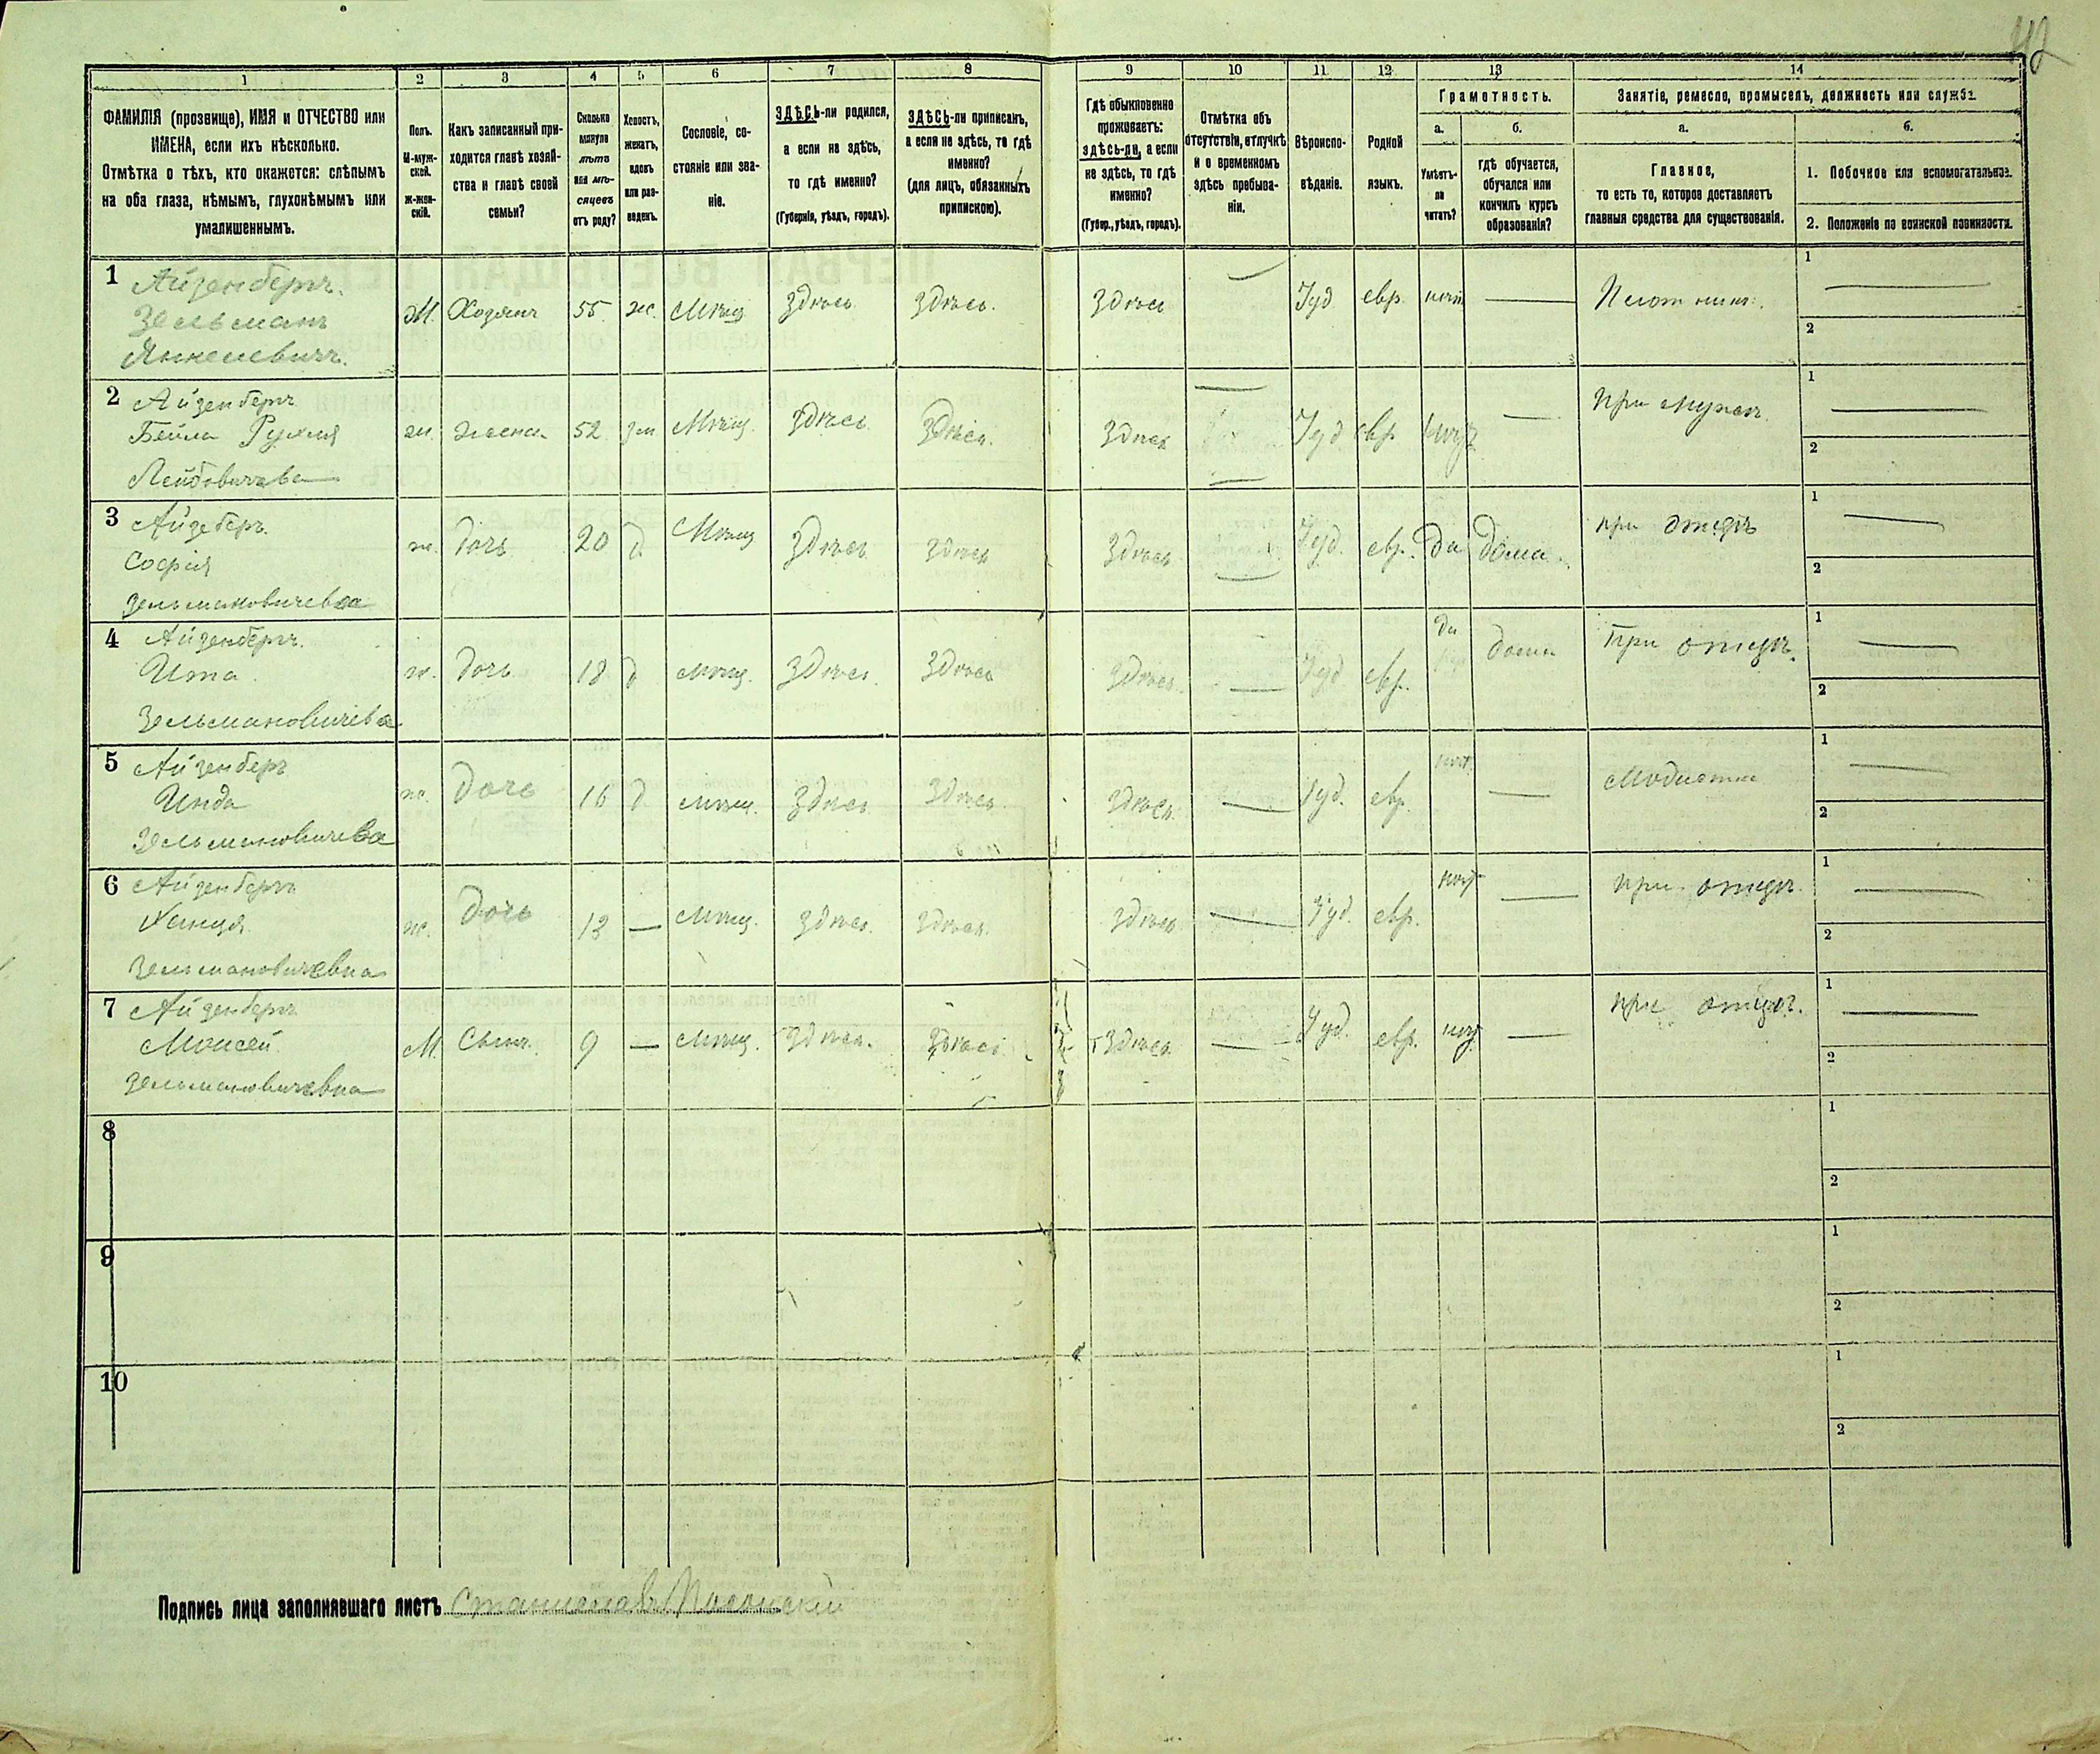 42
1 2 3 4 5 6 7 8 9 10 11 12 13 14
ФАМИЛІЯ (прозвище), ИМЯ и ОТЧЕСТВО или
ИМЕНА, если ихъ нѣсколько.
Отмѣтка о тѣхъ, кто окажется: слѣпымъ
на оба глаза, нѣмымъ, глухонѣмымъ или
умалишеннымъ.
Полъ.
М-муж-
ской.
ж-жен-
скій.
Какъ записанный при-
ходится главѣ хозяй-
ства и главѣ своей
семьи?
Сколько
минуло
лѣтъ
или мѣ-
сяцевъ
отъ роду?
Холостъ,
женатъ,
вдовъ
или раз-
веденъ.
Сословіе, со-
стояніе или зва-
ніе.
ЗДѢСЬ-ли родился,
а если не здѣсь,
то гдѣ именно?
(Губернія, уѣздъ, городъ).
ЗДѢСЬ-ли приписанъ,
а если не здѣсь, то гдѣ
именно?
(для лицъ, обязанныхъ
припискою).
Гдѣ обыкновенно
проживаетъ:
здѣсь-ли, а если
не здѣсь, то гдѣ
именно?
(Губер., уѣздъ, городъ).
Отмѣтка объ
отсутствіи, отлучкѣ
и о временномъ
здѣсь пребыва-
ніи.
Вѣроиспо-
вѣданіе.
Родной
языкъ.
Грамотность.
а.
Умѣетъ-
ли
читать?
б.
гдѣ обучается,
обучался или
кончилъ курсъ
образованія?
Занятіе, ремесло, промыселъ, должность или служба.
а.
Главное,
то есть то, которое доставляетъ
главныя средства для существованія.
б.
1. Побочное или вспомогательное.
2. Положеніе по воинской повинности.
1 Айзенбергъ.
Зельманъ
Янкелевичъ.
М. Хозяинъ 55 ж. Мѣщ здѣсь здѣсь. здѣсь — Іуд евр нѣтъ — Плотникъ. 1 —
2
2 Айзенбергъ
Бейла Рухля
Лейбовичева
ж. жена 52 зам Мѣщ. здѣсь здѣсь. здѣсь — Іуд евр нѣтъ — При мужѣ 1 —
2
3 Айзеберъ.
Софія
Зельмановичевна
ж. дочь 20 д. Мѣщ здѣсь здѣсь здѣсь — Іуд. евр. да дома. при отцѣ 1 —
2
4 Айзенбергъ.
Ита
Зельмановичева
ж. дочь 18 д мѣщ. здѣсь. здѣсь здѣсь. — Іуд евр. да дома При отцѣ. 1 —
2
5 Айзенберъ
Инда
Зельмановичева
ж. дочь 16 д. мѣщ. здѣсь здѣсь. здѣсь. — Іуд. евр. нѣт. — Модистка 1 —
2
6 Айзенбергъ
Ханця
Зельмановичевна
ж. дочь 13 — Мѣщ. здѣсь. здѣсь. здѣсь — Іуд. евр. нѣт — при отцѣ. 1 —
2
7 Айзенбергъ
Моисей
Зельмановичевна
М. Сынъ. 9 — мѣщ. здѣсь. здѣсь здѣсь — Іуд. евр. нѣт — при отцѣ. 1 —
2
8
1
2
9
1
2
10
1
2
Подпись лица заполнявшаго листъ Станиславъ